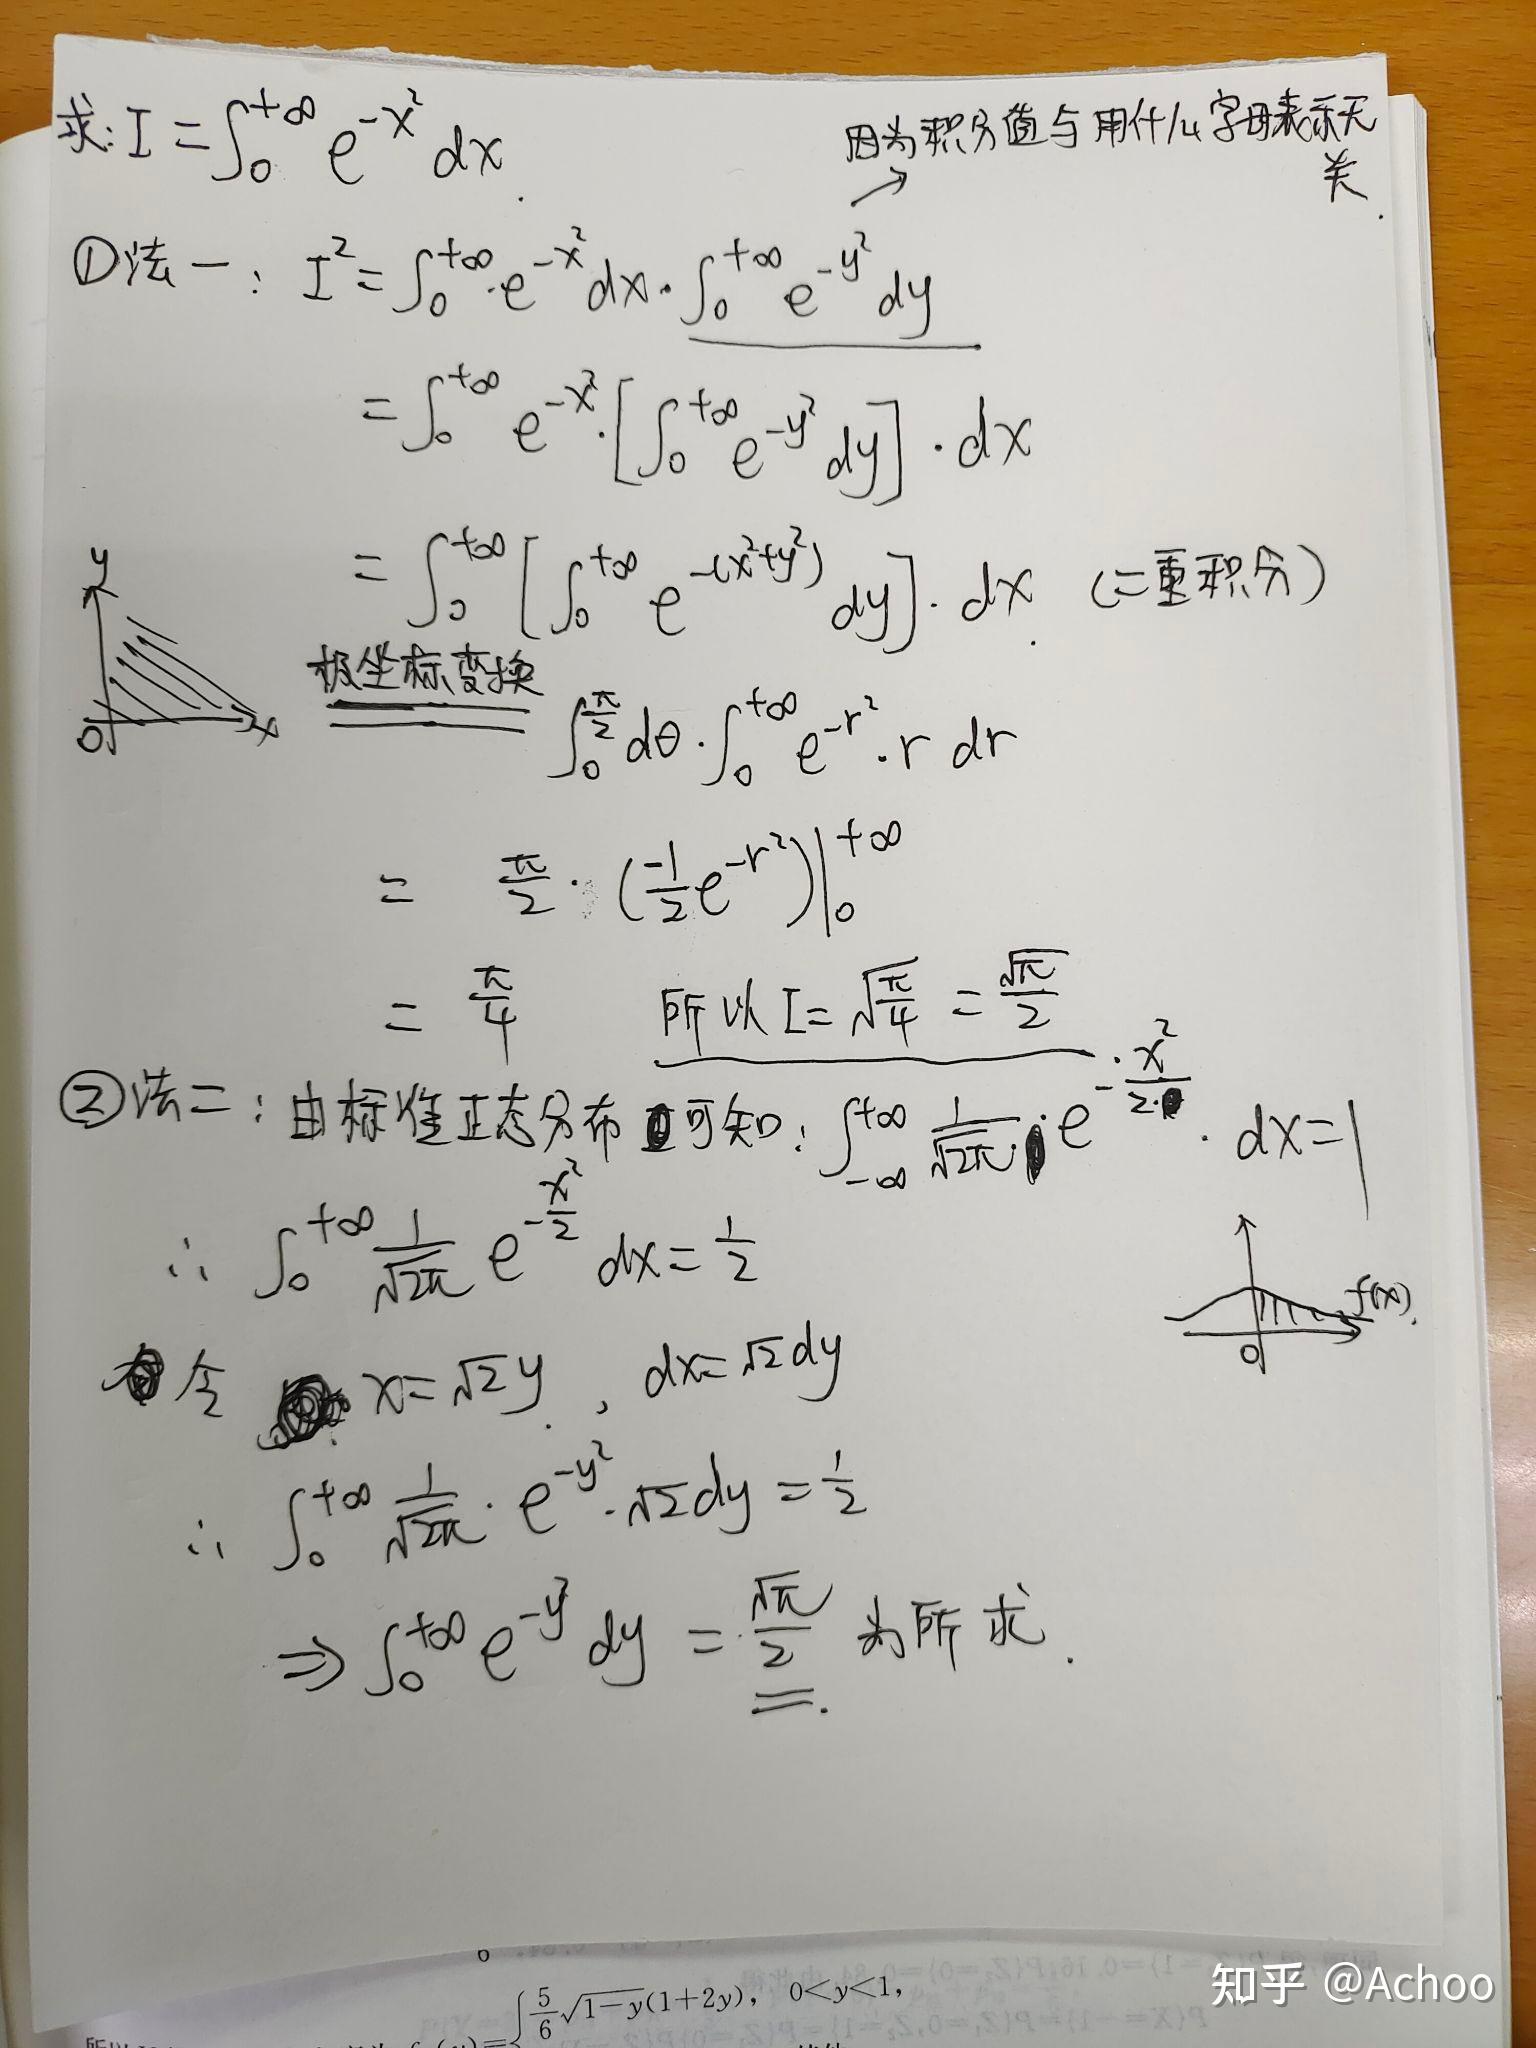 求: I = ∫₀^{+∞} e^{-x²} dx.
因为积分值与用什么字母表示无
关.
①法一: I² = ∫₀^{+∞} · e^{-x²} dx · ∫₀^{+∞} e^{-y²} dy
= ∫₀^{+∞} e^{-x²} · [∫₀^{+∞} e^{-y²} dy] · dx
= ∫₀^{+∞} [∫₀^{+∞} e^{-(x²+y²)} dy] · dx. (二重积分)
y
O x
极坐标变换
∫₀^{π/2} dθ · ∫₀^{+∞} e^{-r²} · r dr
= π/2 · (-1/2 e^{-r²}) |₀^{+∞}
= π/4 所以 I = √(π/4) = √π/2
②法二: 由标准正态分布可知: ∫_{-∞}^{+∞} 1/√(2π) · e^{-x²/2} · dx = 1
∴ ∫₀^{+∞} 1/√(2π) e^{-x²/2} dx = 1/2
f(x).
0
令 x = √2 y. , dx = √2 dy
∴ ∫₀^{+∞} 1/√(2π) · e^{-y²} · √2 dy = 1/2
⇒ ∫₀^{+∞} e^{-y²} dy = √π/2 为所求.
知乎 @Achoo
5/6 √(1-y)(1+2y), 0<y<1,